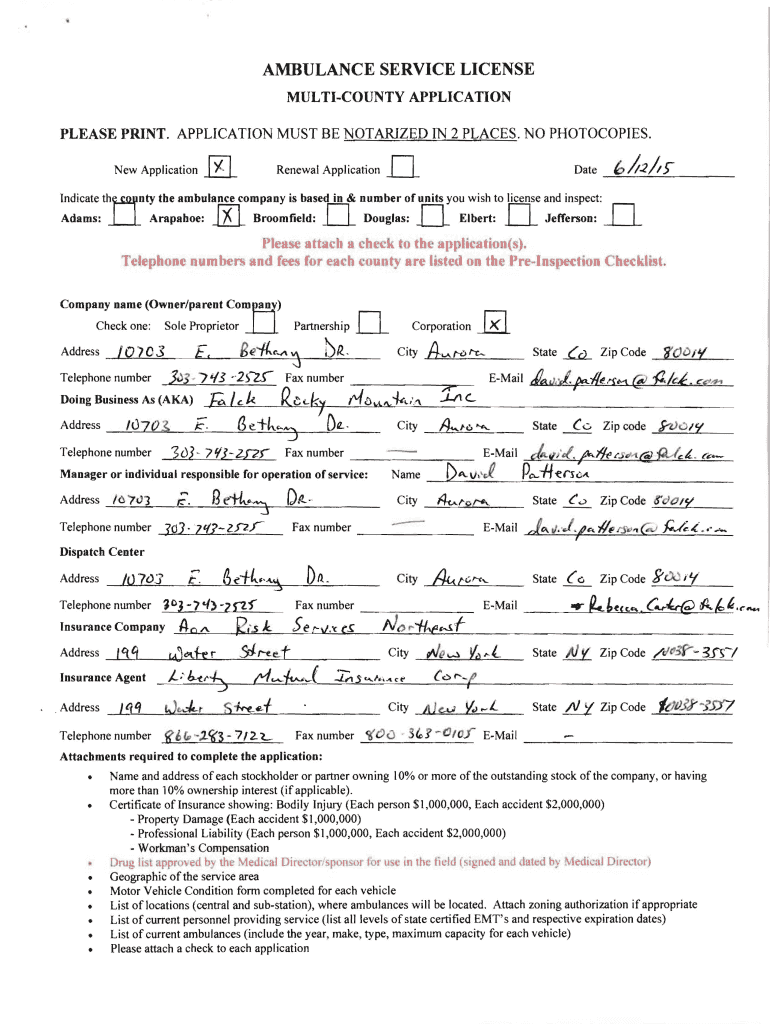 AMBULANCE SERVICE LICENSE
MULTI-COUNTY APPLICATION
PLEASE PRINT. APPLICATION MUST BE NOTARIZED IN 2 PLACES. NO PHOTOCOPIES.
New Application X Renewal Application Date 6/12/15
Indicate the county the ambulance company is based in & number of units you wish to license and inspect:
Adams: Arapahoe: X Broomfield: Douglas: Elbert: Jefferson:
Please attach a check to the application(s).
Telephone numbers and fees for each county are listed on the Pre-Inspection Checklist.
Company name (Owner/parent Company)
Check one: Sole Proprietor Partnership Corporation X
Address 10703 E. Bethany DR. City Aurora State Co Zip Code 80014
Telephone number 303-743-2525 Fax number E-Mail david.patterson@falck.com
Doing Business As (AKA) Falck Rocky Mountain Inc
Address 10703 E. Bethany DR. City Aurora State Co Zip code 80014
Telephone number 303-743-2525 Fax number — E-Mail david.patterson@falck.com
Manager or individual responsible for operation of service: Name David Patterson
Address 10703 E. Bethany DR. City Aurora State Co Zip Code 80014
Telephone number 303-743-2525 Fax number — E-Mail david.patterson@falck.com
Dispatch Center
Address 10703 E. Bethany DR. City Aurora State Co Zip Code 80014
Telephone number 303-743-2525 Fax number E-Mail Rebecca.Carter@falck.com
Insurance Company Aon Risk Services Northeast
Address 199 Water Street City New York State NY Zip Code 10038-3551
Insurance Agent Liberty Mutual Insurance Corp
Address 199 Water Street City New York State NY Zip Code 10038-3551
Telephone number 866-283-7122 Fax number 800-363-0105 E-Mail –
Attachments required to complete the application:
• Name and address of each stockholder or partner owning 10% or more of the outstanding stock of the company, or having
more than 10% ownership interest (if applicable).
• Certificate of Insurance showing: Bodily Injury (Each person $1,000,000, Each accident $2,000,000)
- Property Damage (Each accident $1,000,000)
- Professional Liability (Each person $1,000,000, Each accident $2,000,000)
- Workman's Compensation
• Drug list approved by the Medical Director/sponsor for use in the field (signed and dated by Medical Director)
• Geographic of the service area
• Motor Vehicle Condition form completed for each vehicle
• List of locations (central and sub-station), where ambulances will be located. Attach zoning authorization if appropriate
• List of current personnel providing service (list all levels of state certified EMT's and respective expiration dates)
• List of current ambulances (include the year, make, type, maximum capacity for each vehicle)
• Please attach a check to each application